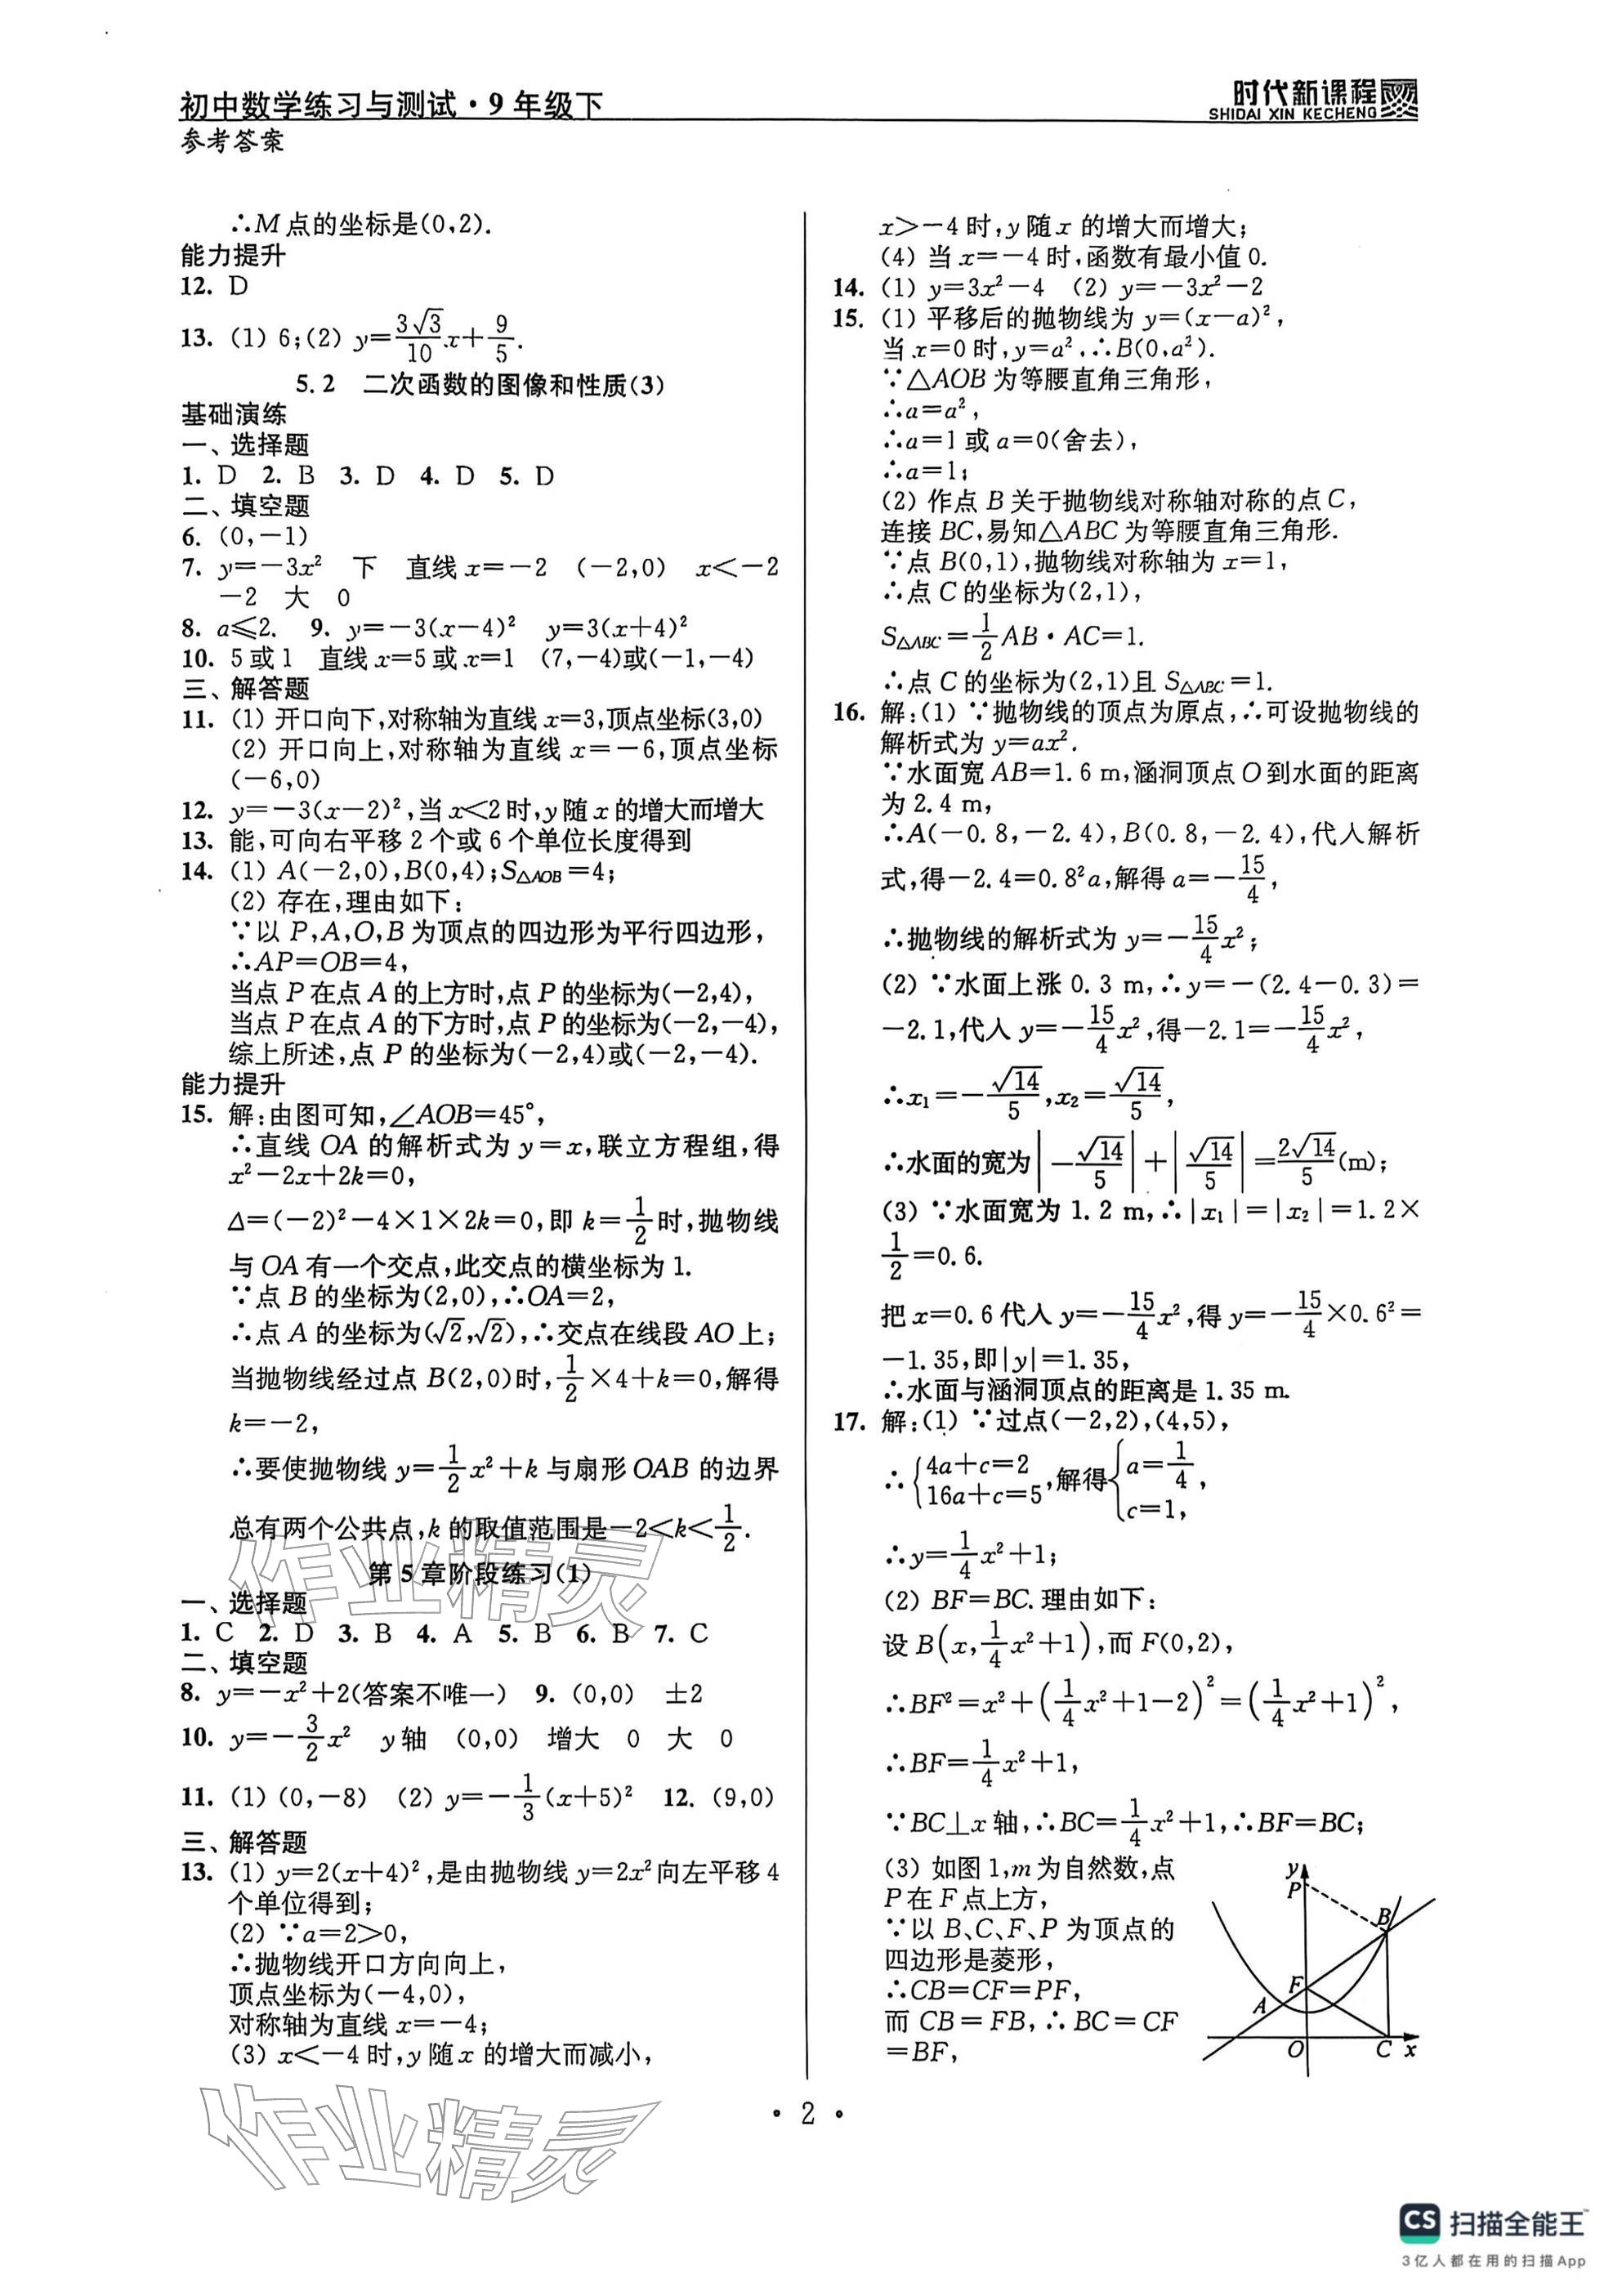 初中数学练习与测试·9年级下
时代新课程
SHIDAI XIN KECHENG
参考答案
∴M点的坐标是(0,2).
能力提升
12. D
13. (1) 6;(2) y=$\frac{3\sqrt{3}}{10}$x+$\frac{9}{5}$.
5.2 二次函数的图像和性质(3)
基础演练
一、选择题
1. D 2. B 3. D 4. D 5. D
二、填空题
6. (0,-1)
7. y=-3x² 下 直线x=-2 (-2,0) x<-2
-2 大 0
8. a≤2. 9. y=-3(x-4)² y=3(x+4)²
10. 5或1 直线x=5或x=1 (7,-4)或(-1,-4)
三、解答题
11. (1) 开口向下,对称轴为直线x=3,顶点坐标(3,0)
(2) 开口向上,对称轴为直线x=-6,顶点坐标
(-6,0)
12. y=-3(x-2)²,当x<2时,y随x的增大而增大
13. 能,可向右平移2个或6个单位长度得到
14. (1) A(-2,0),B(0,4);S△AOB=4;
(2) 存在,理由如下:
∵以P,A,O,B为顶点的四边形为平行四边形,
∴AP=OB=4,
当点P在点A的上方时,点P的坐标为(-2,4),
当点P在点A的下方时,点P的坐标为(-2,-4),
综上所述,点P的坐标为(-2,4)或(-2,-4).
能力提升
15. 解:由图可知,∠AOB=45°,
∴直线OA的解析式为y=x,联立方程组,得
x²-2x+2k=0,
Δ=(-2)²-4×1×2k=0,即k=$\frac{1}{2}$时,抛物线
与OA有一个交点,此交点的横坐标为1.
∵点B的坐标为(2,0),∴OA=2,
∴点A的坐标为(√2,√2),∴交点在线段AO上;
当抛物线经过点B(2,0)时,$\frac{1}{2}$×4+k=0,解得
k=-2,
∴要使抛物线y=$\frac{1}{2}$x²+k与扇形OAB的边界
总有两个公共点,k的取值范围是-2<k<$\frac{1}{2}$.
第5章阶段练习(1)
一、选择题
1. C 2. D 3. B 4. A 5. B 6. B 7. C
二、填空题
8. y=-x²+2(答案不唯一) 9. (0,0) ±2
10. y=-$\frac{3}{2}$x² y轴 (0,0) 增大 0 大 0
11. (1) (0,-8) (2) y=-$\frac{1}{3}$(x+5)² 12. (9,0)
三、解答题
13. (1) y=2(x+4)²,是由抛物线y=2x²向左平移4
个单位得到;
(2) ∵a=2>0,
∴抛物线开口方向向上,
顶点坐标为(-4,0),
对称轴为直线x=-4;
(3) x<-4时,y随x的增大而减小,
x>-4时,y随x的增大而增大;
(4) 当x=-4时,函数有最小值0.
14. (1) y=3x²-4 (2) y=-3x²-2
15. (1) 平移后的抛物线为y=(x-a)²,
当x=0时,y=a²,∴B(0,a²).
∵△AOB为等腰直角三角形,
∴a=a²,
∴a=1或a=0(舍去),
∴a=1;
(2) 作点B关于抛物线对称轴对称的点C,
连接BC,易知△ABC为等腰直角三角形.
∵点B(0,1),抛物线对称轴为x=1,
∴点C的坐标为(2,1),
S△ABC=$\frac{1}{2}$AB·AC=1.
∴点C的坐标为(2,1)且S△ABC=1.
16. 解:(1) ∵抛物线的顶点为原点,∴可设抛物线的
解析式为y=ax².
∵水面宽AB=1.6 m,涵洞顶点O到水面的距离
为2.4 m,
∴A(-0.8,-2.4),B(0.8,-2.4),代入解析
式,得-2.4=0.8²a,解得a=-$\frac{15}{4}$,
∴抛物线的解析式为y=-$\frac{15}{4}$x²;
(2) ∵水面上涨0.3 m,∴y=-(2.4-0.3)=
-2.1,代入y=-$\frac{15}{4}$x²,得-2.1=-$\frac{15}{4}$x²,
∴x₁=-$\frac{\sqrt{14}}{5}$,x₂=$\frac{\sqrt{14}}{5}$,
∴水面的宽为|-$\frac{\sqrt{14}}{5}$|+|$\frac{\sqrt{14}}{5}$|=$\frac{2\sqrt{14}}{5}$(m);
(3) ∵水面宽为1.2 m,∴|x₁|=|x₂|=1.2×
$\frac{1}{2}$=0.6.
把x=0.6代入y=-$\frac{15}{4}$x²,得y=-$\frac{15}{4}$×0.6²=
-1.35,即|y|=1.35,
∴水面与涵洞顶点的距离是1.35 m.
17. 解:(1) ∵过点(-2,2),(4,5),
∴$\begin{cases}4a+c=2\\16a+c=5\end{cases}$,解得$\begin{cases}a=\frac{1}{4},\\c=1,\end{cases}$
∴y=$\frac{1}{4}$x²+1;
(2) BF=BC.理由如下:
设B(x,$\frac{1}{4}$x²+1),而F(0,2),
∴BF²=x²+($\frac{1}{4}$x²+1-2)²=($\frac{1}{4}$x²+1)²,
∴BF=$\frac{1}{4}$x²+1,
∵BC⊥x轴,∴BC=$\frac{1}{4}$x²+1,∴BF=BC;
(3) 如图1,m为自然数,点
P在F点上方,
∵以B、C、F、P为顶点的
四边形是菱形,
∴CB=CF=PF,
而CB=FB,∴BC=CF
=BF,
y
P
B
F
A
O
C
x
· 2 ·
作业精灵
作业精灵
CS 扫描全能王™
3亿人都在用的扫描App